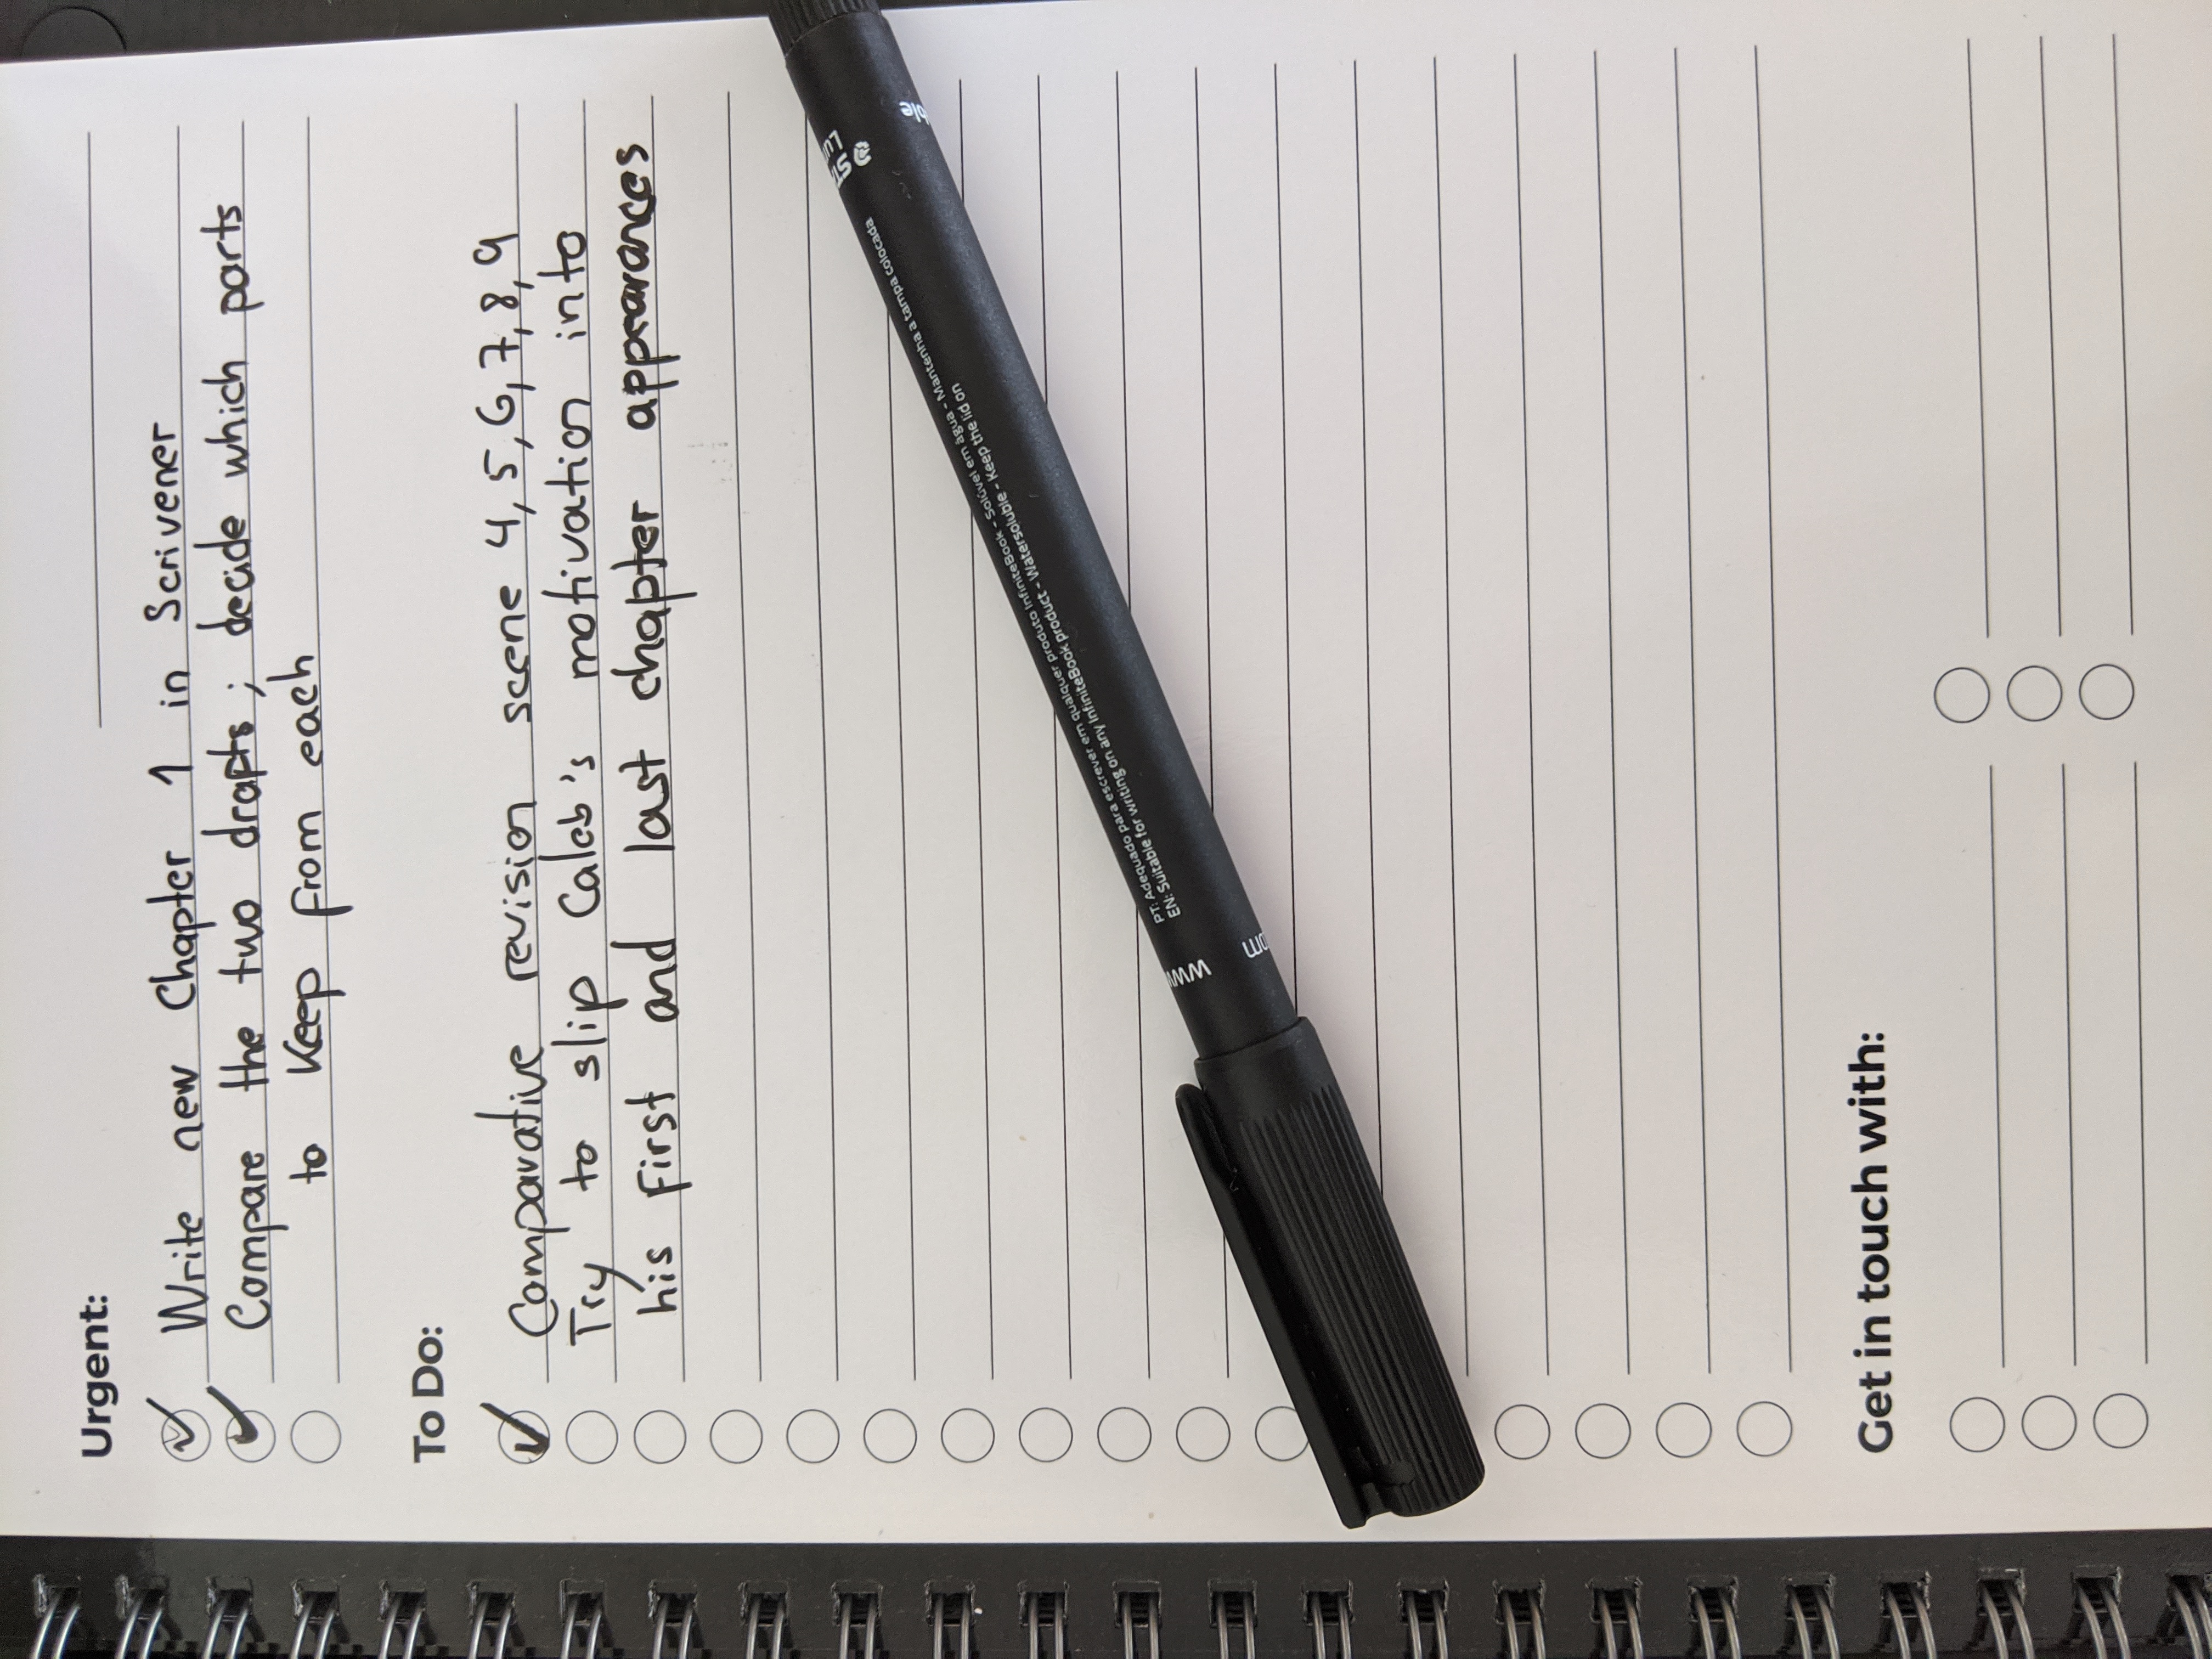 Urgent:
Write new Chapter 1 in Scrivener
Compare the two drafts; decide which parts
to Keep from each
To Do:
Comparative revision scene 4, 5, 6, 7, 8, 9
Try to slip Caleb's motivation into
his first and last chapter appearances
PT: Adequado para escrever em qualquer produto InfiniteBook - Solúvel em água - Mantenha a tampa colocada
EN: Suitable for writing on any InfiniteBook product - Watersoluble - Keep the lid on
www
Get in touch with: